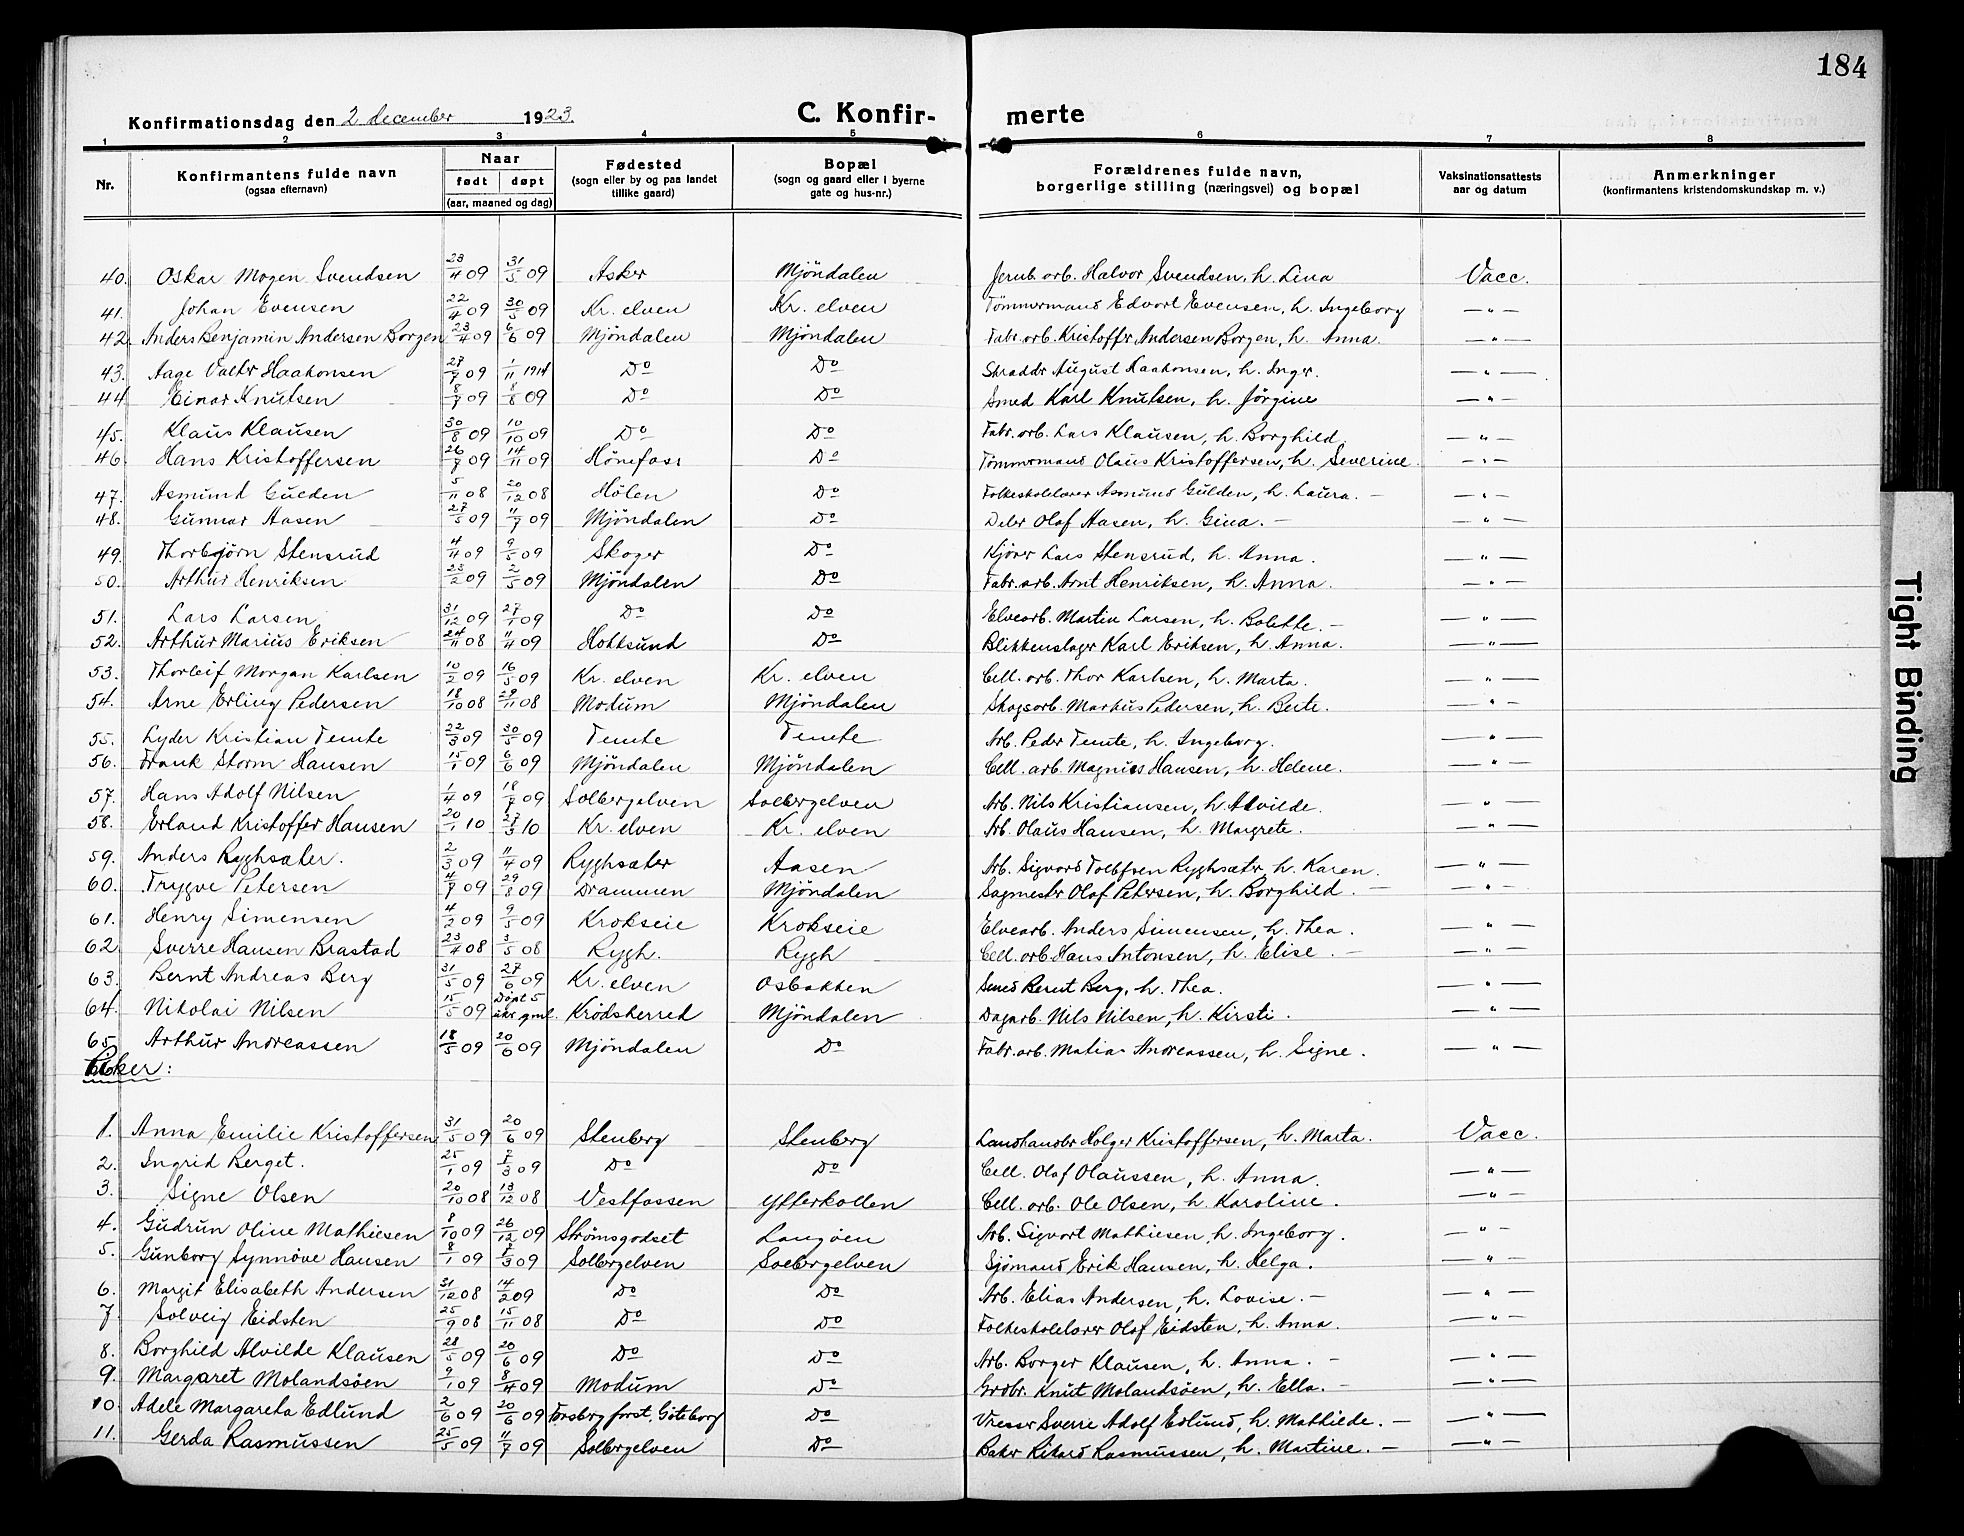 184
Konfirmationsdag den 2 december 1923. C. Konfirmerte
1 2 3 4 5 6 7 8
Nr. Konfirmantens fulde navn (ogsaa efternavn) Naar født døpt (aar, maaned og dag) Fødested (sogn eller by og paa landet tillike gaard) Bopæl (sogn og gaard eller i byerne gate og hus-nr.) Forældrenes fulde navn, borgerlige stilling (næringsvei) og bopæl Vaksinationsattests aar og datum Anmerkninger (konfirmantens kristendomskundskap m. v.)
40. Oskar Mogen Svendsen 23/4 09 31/5 09 Asker Mjöndalen Jernb. arb. Halvor Svendsen, h. Lina Vacc.
41. Johan Evensen 22/4 09 30/5 09 Kr. elven Kr. elven Tömmermand Edvart Evensen, h. Ingeborg —"—
42. Anders Benjamin Andersen Borgen 23/4 09 6/6 09 Mjöndalen Mjöndalen Fabr. arb. Kristoffer Andersen Borgen, h. Anna. —"—
43. Aage Valter Haakonsen 27/7 09 1/11 1914 Do Do Skrædder August Haakonsen, h. Inger. —"—
44. Einar Knutsen 8/7 09 8/8 09 Do Do Smed Karl Knutsen, h. Jörgine —"—
45. Klaus Klausen 30/8 09 10/10 09 Do Do Fabr. arb. Lars Klausen, h. Borghild. —"—
46. Hans Kristoffersen 26/7 09 14/11 09 Hönefoss Do Tömmermand Olaus Kristoffersen, h. Severine. —"—
47. Asmund Gulden 5/11 08 20/12 08 Hölen Do Folkeskolelærer Asmund Gulden, h. Laura. —"—
48. Gunnar Aasen 27/5 09 11/7 09 Mjöndalen Do Deler Olaf Aasen, h. Gina. —"—
49. Thorbjörn Stensrud 4/4 09 9/5 09 Skoger Do Kjörer Lars Stensrud, h. Anna. —"—
50. Arthur Henriksen 23/2 09 2/5 09 Mjöndalen Do Fabr. arb. Arnt Henriksen, h. Anna. —"—
51. Lars Larsen 31/12 09 27/1 09 Do Do Elvearb. Martin Larsen, h. Bolette. —"—
52. Arthur Marius Eriksen 24/11 08 11/4 09 Hokksund Do Blikkenslager Karl Eriksen, h. Anna. —"—
53. Thorleif Morgan Karlsen 10/2 09 16/5 09 Kr. elven Kr. elven Cell. arb. Thor Karlsen, h. Marta. —"—
54. Arne Erling Pedersen 18/10 08 29/11 08 Modum Mjöndalen Skogsarb. Markus Pedersen, h. Berte. —"—
55. Lyder Kristian Temte 22/3 09 30/5 09 Temte Temte Arb. Peder Temte, h. Ingeborg. —"—
56. Frank Storm Hansen 15/1 09 6/6 09 Mjöndalen Mjöndalen Cell. arb. Magnus Hansen, h. Helene. —"—
57. Hans Adolf Nilsen 1/4 09 18/7 09 Solbergelven Solbergelven Arb. Nils Kristiansen, h. Alvilde. —"—
58. Erland Kristoffer Hansen 20/1 10 27/3 10 Kr. elven Kr. elven Arb. Olaus Hansen, h. Margrete. —"—
59. Anders Ryghsæter. 2/3 09 11/4 09 Ryghsæter Aasen Arb. Sigvard Tollefsen Ryghsæter h. Karen. —"—
60. Trygve Petersen 4/7 09 29/8 09 Drammen Mjöndalen Sagmester Olaf Petersen, h. Borghild. —"—
61. Henry Simensen 4/2 09 9/5 09 Krokseie Krokseie Elvearb. Anders Simensen, h. Thea. —"—
62. Sverre Hansen Brastad 23/4 08 3/5 08 Rygh. Rygh Cell. arb. Hans Antonsen, h. Elise. —"—
63. Bernt Andreas Berg 31/5 09 27/6 09 Kr. elven Osbakken Smed Bernt Berg, h. Thea. —"—
64. Nikolai Nilsen 15/5 09 Döpt 5 uker gml. Krödsherred Mjöndalen Dagarb. Nils Nilsen, h. Kirsti. —"—
65. Arthur Andreassen 18/5 09 20/6 09 Mjöndalen Do Fabr. arb. Matias Andreassen, h. Signe. —"—
Piker:
1. Anna Emilie Kristoffersen 31/5 09 20/6 09 Stenberg Stenberg Landhandler Holger Kristoffersen, h. Marta. Vacc.
2. Ingrid Berget. 25/1 09 7/3 09 Do Do Cell. Olaf Olaussen, h. Anna. —"—
3. Signe Olsen 20/10 08 13/12 08 Vestfossen Ytterkollen Cell. arb. Ole Olsen, h. Karoline. —"—
4. Gudrun Oline Mathiesen 8/10 09 26/12 09 Strömsgodset Langöen Arb. Sigvart Mathiesen, h. Ingeborg. —"—
5. Gunborg Synnöve Hansen 8/1 09 7/3 09 Solbergelven Solbergelven Sjömand Erik Hansen, h. Helga. —"—
6. Margit Elisabeth Andersen 31/12 08 14/2 09 Do Do Arb. Elias Andersen, h. Lovise. —"—
7. Solveig Eidsten 25/9 08 15/11 08 Do Do Folkeskolelærer Olaf Eidsten, h. Anna. —"—
8. Borghild Alvilde Klausen 28/5 09 20/6 09 Do Do Arb. Borger Klausen, h. Anna. —"—
9. Margaret Molandsöen 9/1 09 8/4 09 Modum Do Grdbr. Knut Molandsöen, h. Ella. —"—
10. Adele Margareta Edlund 2/6 09 20/6 09 Forsberg forst, Göteborg Do Sverre Adolf Edlund, h. Mathilde. —"—
11. Gerda Rasmussen 25/5 09 11/7 09 Solbergelven Do Baker Rikard Rasmussen, h. Martine. —"—
Tight Binding